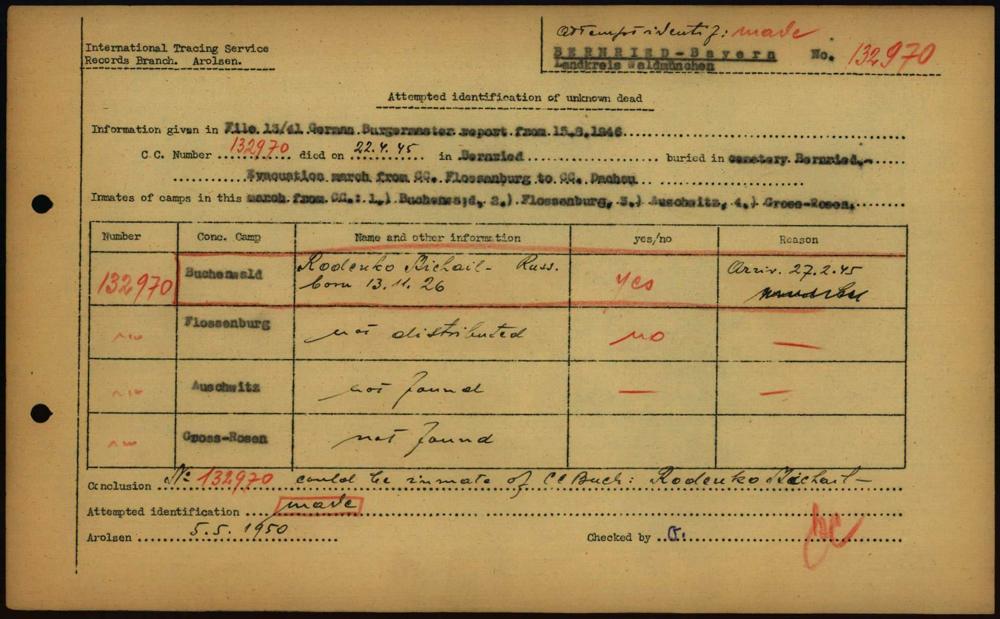 attempt identif: made
International Tracing Service
Records Branch. Arolsen.
BERNRIED-Bayern No. 132970
Landkreis Waldmünchen
Attempted identification of unknown dead
Information given in File 13/41 German Burgermaster report from 15.8.1946
C.C. Number 132970 died on 22.4.45 in Bernried buried in cemetery Bernried,-
Evacuation march from CC. Flossenburg to CC. Dachau
Inmates of camps in this march from CC.: 1.) Buchenwald, 2.) Flossenburg, 3.) Auschwitz, 4.) Gross-Rosen.
Number Conc. Camp Name and other information yes/no Reason
132970 Buchenwald Rodenko Michail- Russ. born 13.11.26 yes Arriv. 27.2.45
-"- Flossenburg not distributed no —
-"- Auschwitz not found — —
-"- Gross-Rosen not found
Conclusion No 132970 could be inmate of CC Buch: Rodenko Michail-
Attempted identification made
Arolsen 5.5.1950 Checked by